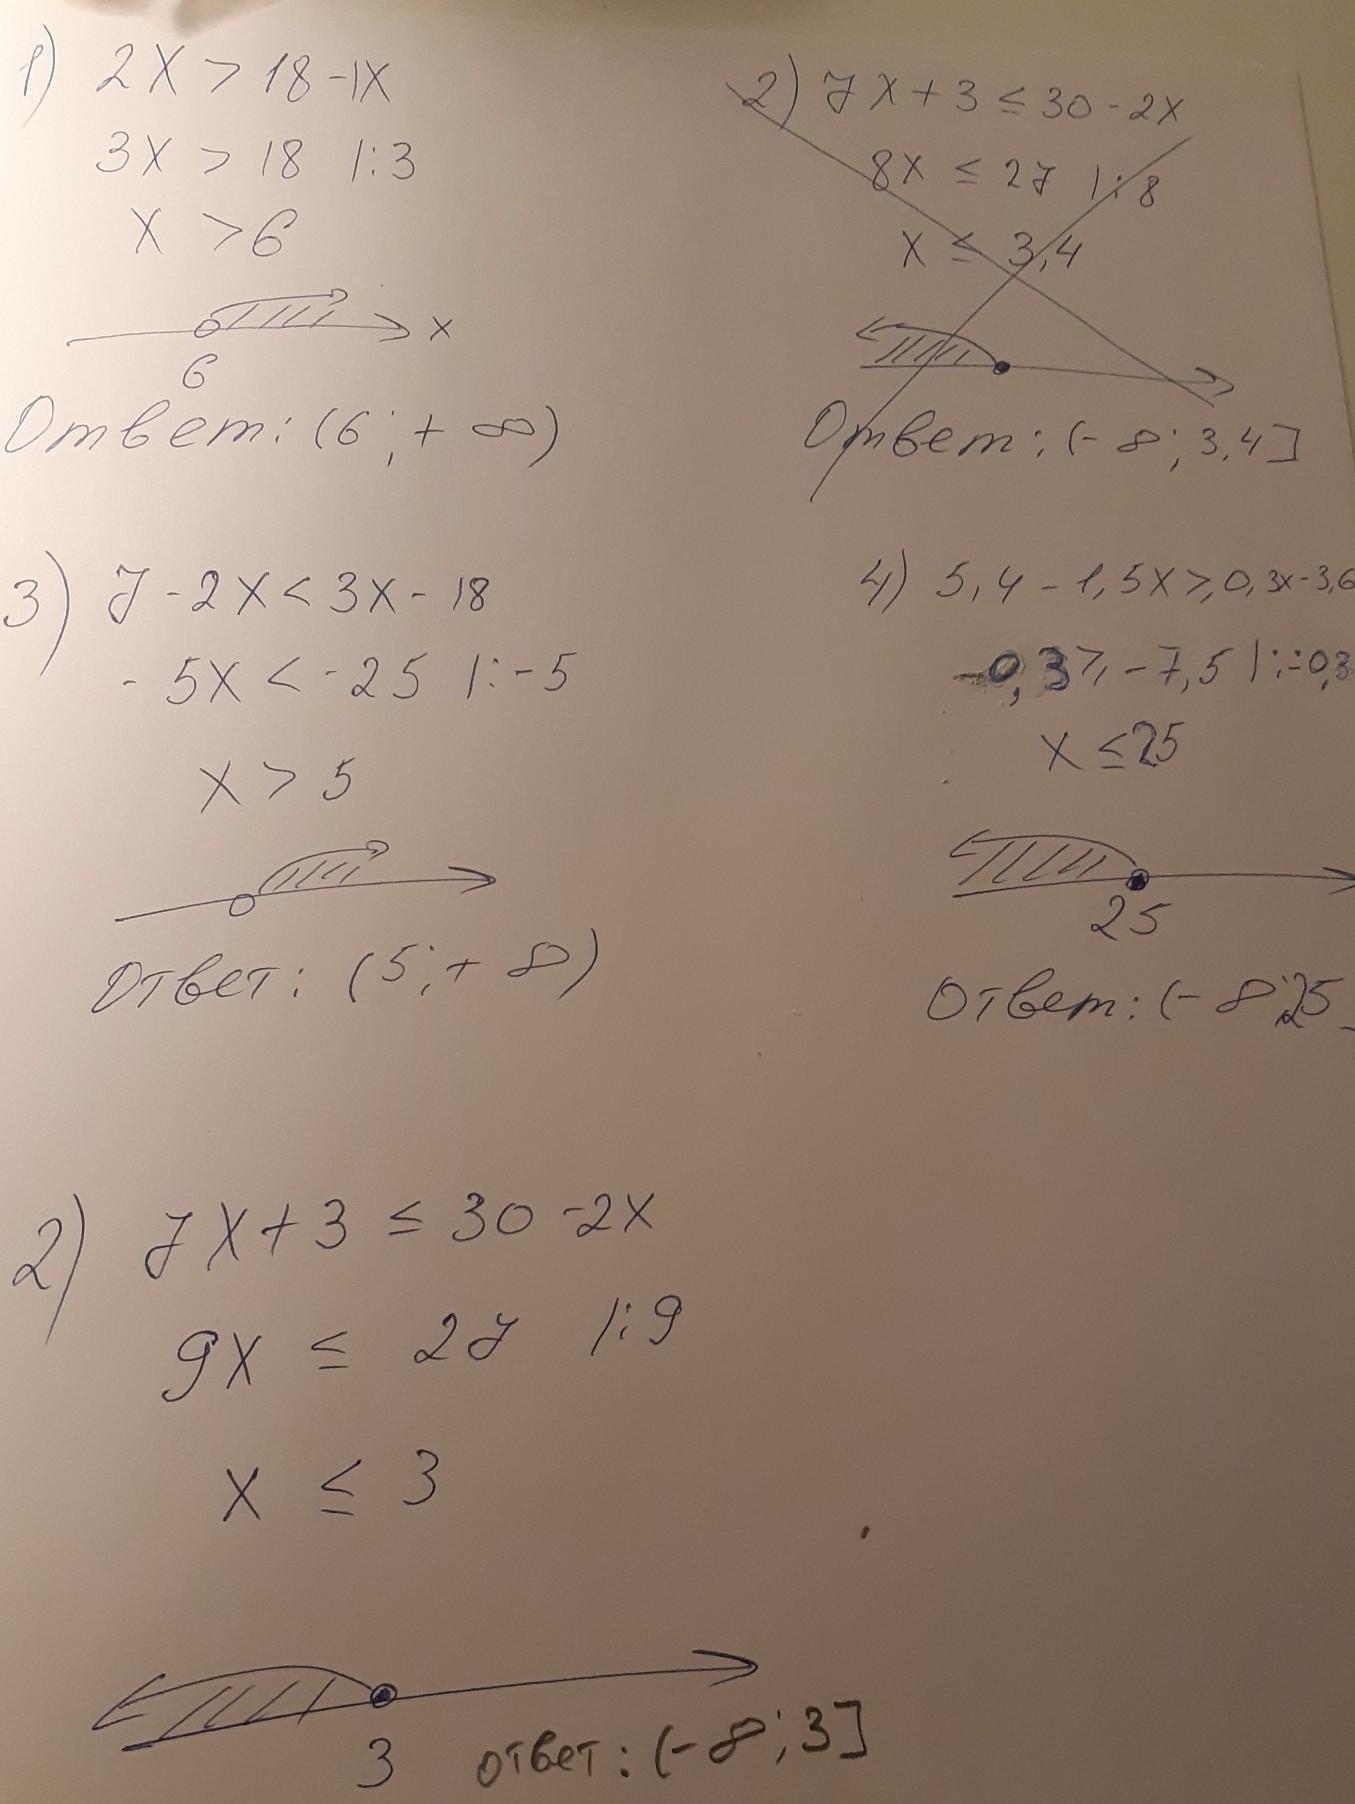 1) 2x > 18 - 1x
3x > 18 |:3
x > 6
x
6
Ответ: (6; + ∞)
2) 7x + 3 ≤ 30 - 2x
8x ≤ 27 |:8
x ≤ 3,4
Ответ: (- ∞; 3,4]
3) 7 - 2x < 3x - 18
- 5x < - 25 |: - 5
x > 5
Ответ: (5; + ∞)
4) 5,4 - 1,5x ≥ 0,3x - 3,6
-0,3 ≥ - 7,5 |: -0,3
x ≤ 25
25
Ответ: (- ∞; 25
2) 7x + 3 ≤ 30 - 2x
9x ≤ 27 |:9
x ≤ 3
3
ответ: (- ∞; 3]